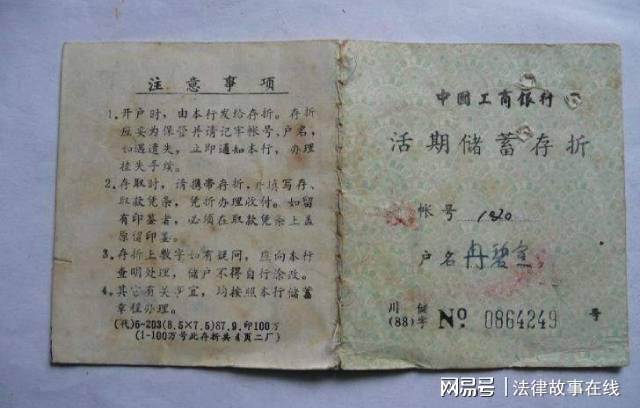 注意事项
1.开户时，由本行发给存折。存折
应妥为保管并请记牢帐号、户名，
如遇遗失，立即通知本行，办理
挂失手续。
2.存取时，请携带存折，并填写存、
取款凭条，凭折办理收付。如留
有印鉴者，必须在取款凭条上盖
原留印鉴。
3.存折上数字如有疑问，应向本行
查明处理，储户不得自行涂改。
4.其它有关事宜，均按照本行储蓄
章程办理。
(代)6-203(8.5×7.5)87.9.印100万
(1-100万号此存折共4页二厂)
中国工商银行
活期储蓄存折
帐号 1820
户名 冉碧
川储
(88)字 No 0864249 号
网易号 | 法律故事在线